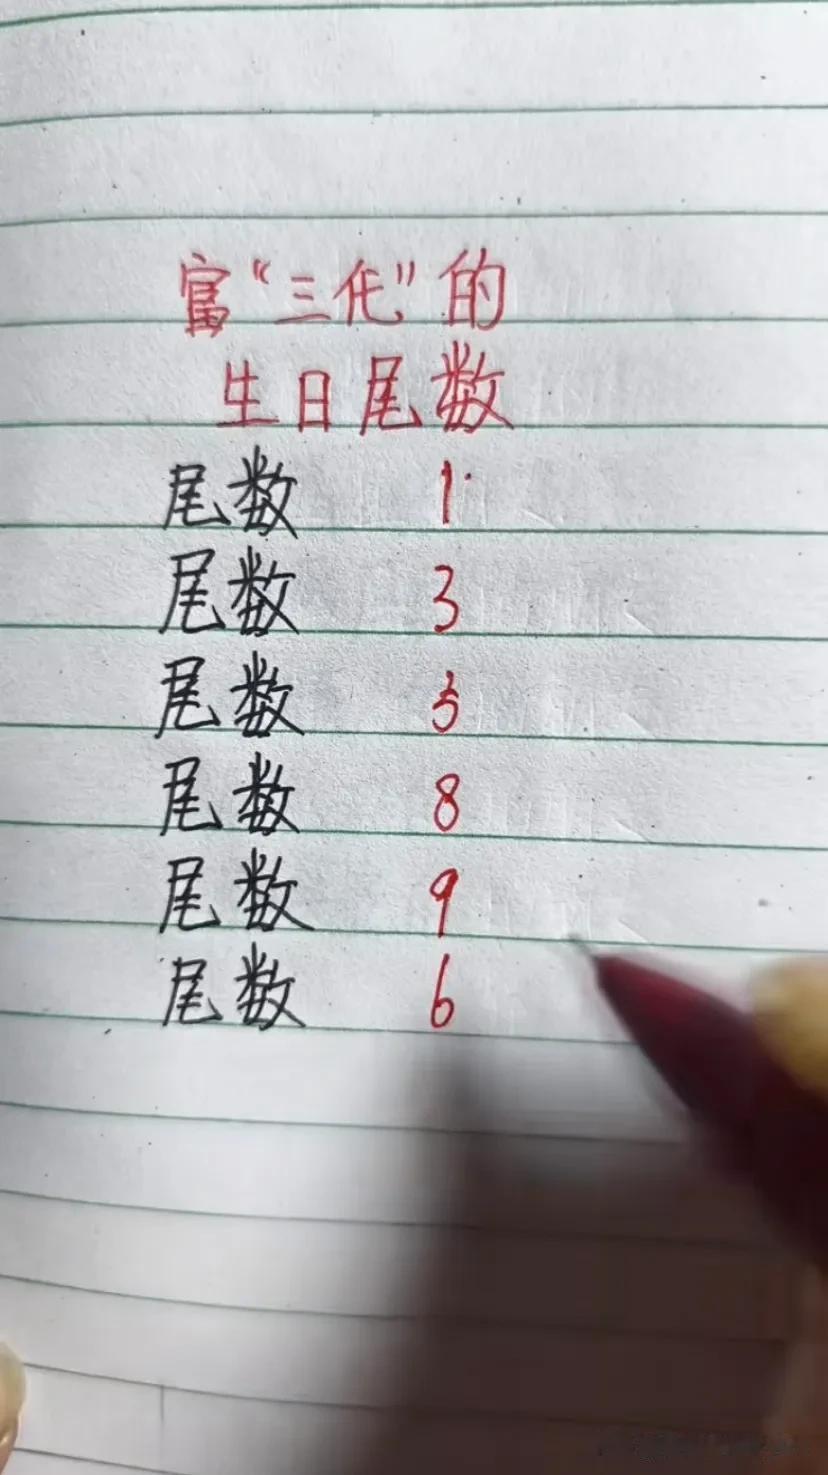 富“三代”的
生日尾数
尾数 1
尾数 3
尾数 5
尾数 8
尾数 9
尾数 6